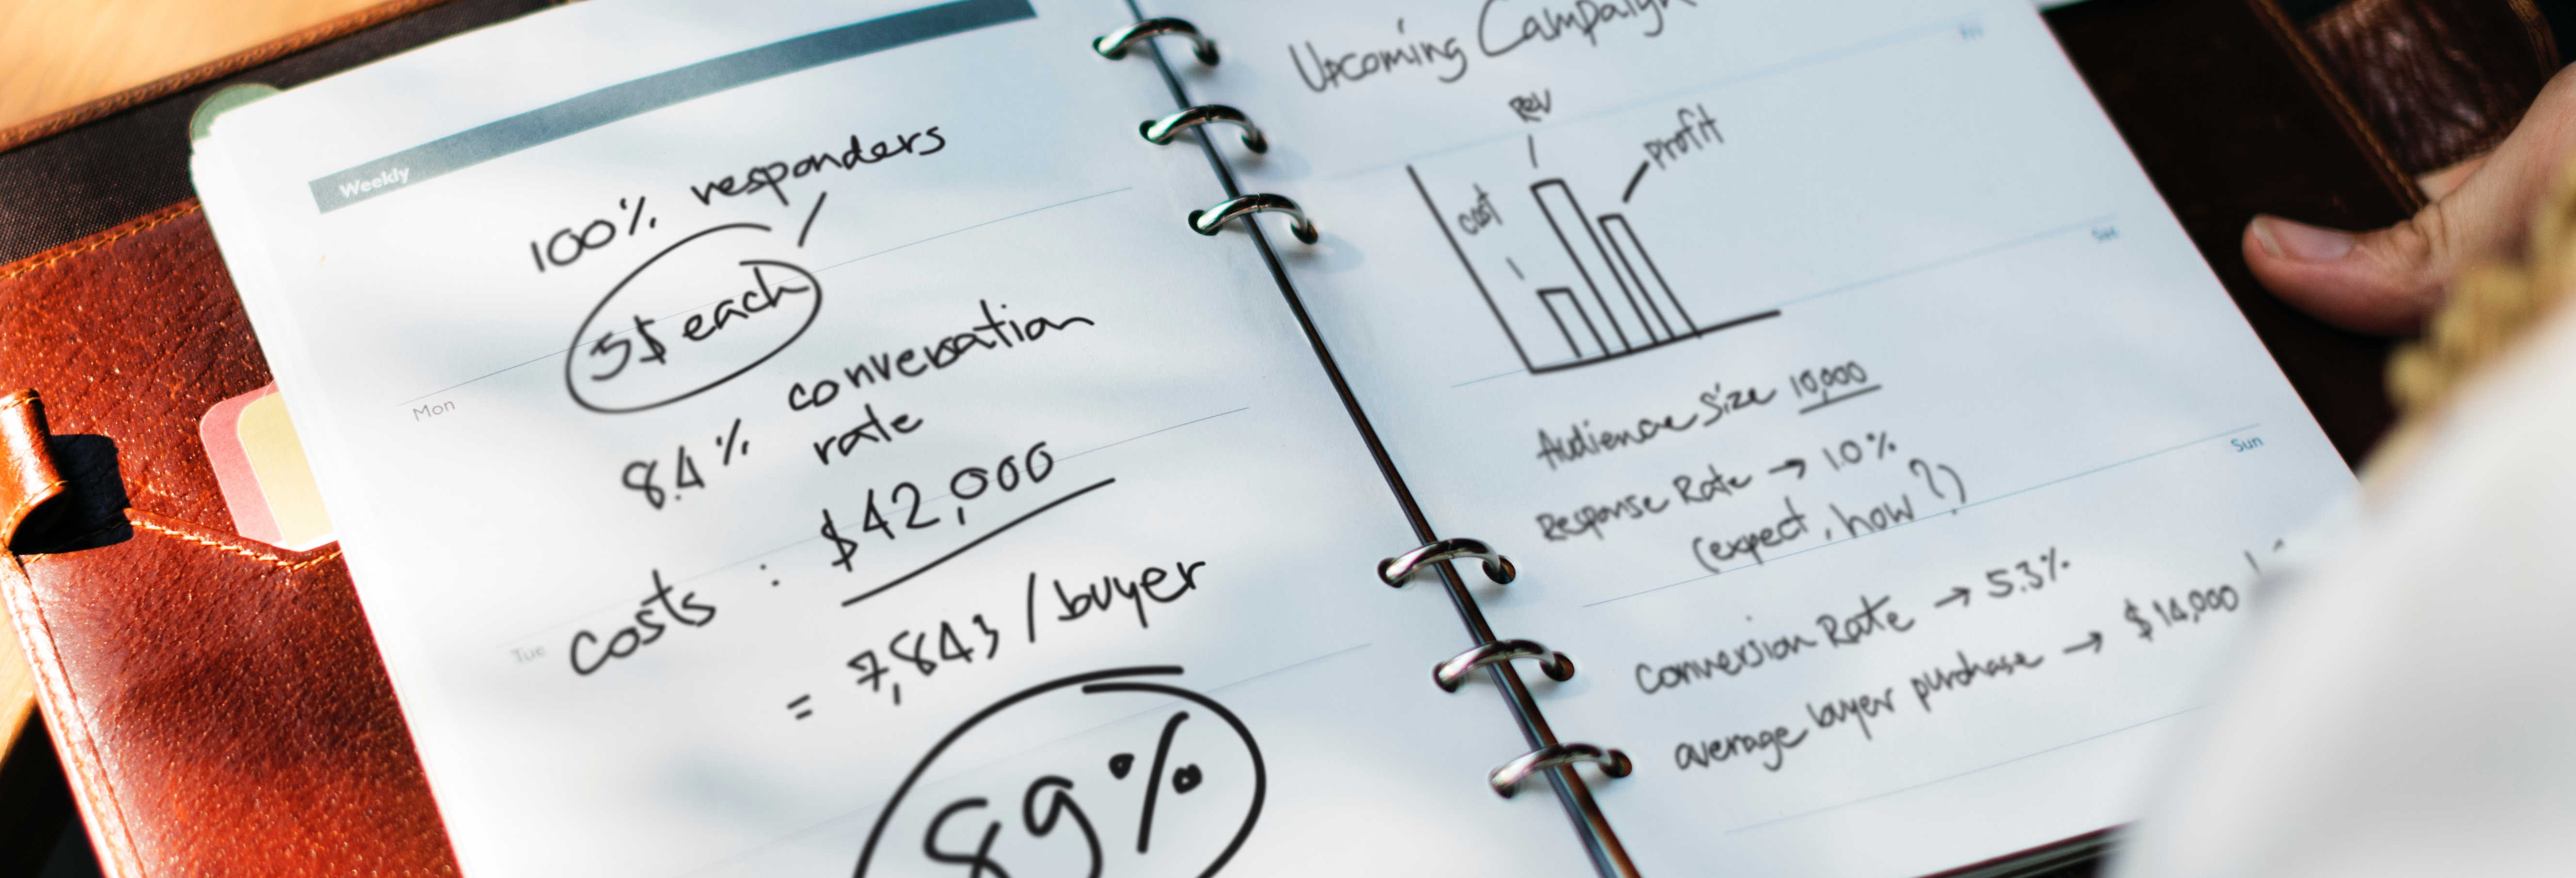 Weekly
100% responders
5$ each
Mon
8.4% conversation
rate
costs : $42,000
Tue
= 7,843 / buyer
89%
Upcoming Campaign
Fri
Rev
Profit
cost
Sat
Audience Size 10,000
Response Rate → 1.0%
(expect, how?)
Sun
Conversion Rate → 5.3%
average buyer purchase → $14,000